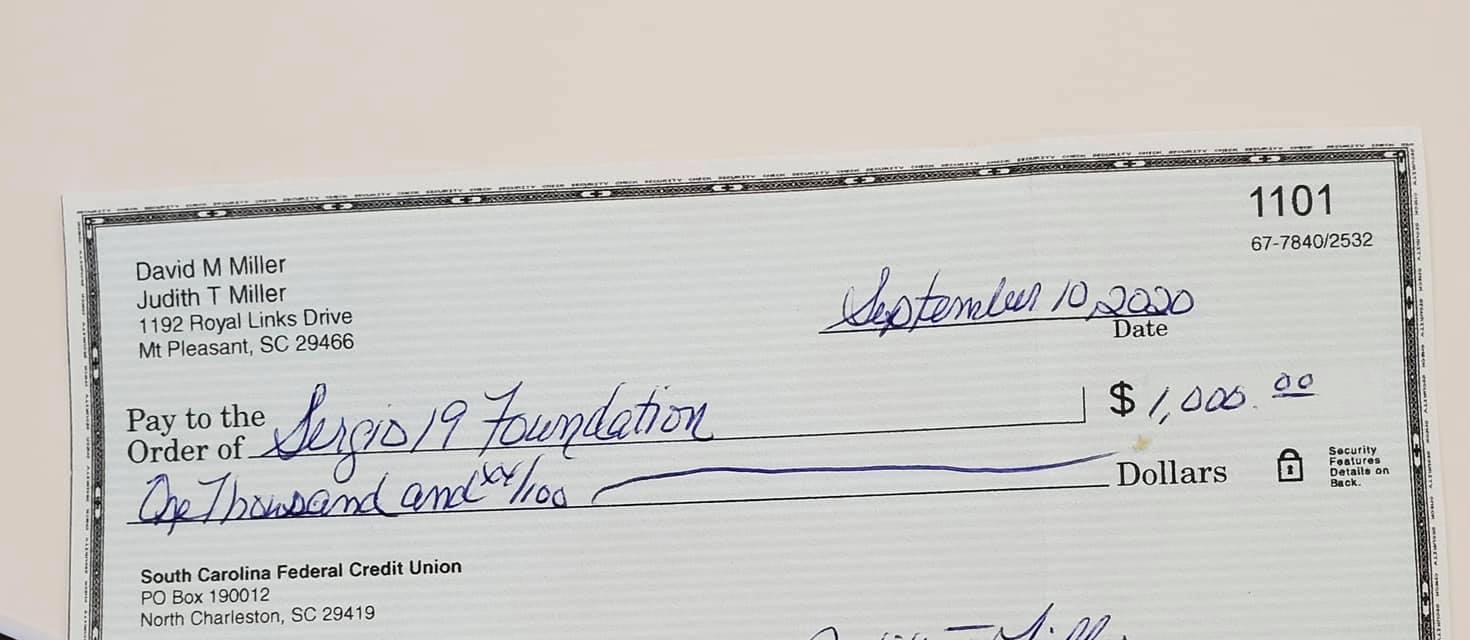 1101
67-7840/2532
David M Miller
Judith T Miller
1192 Royal Links Drive
Mt Pleasant, SC 29466
September 10, 2020
Date
Pay to the
Order of Sergio 19 Foundation $ 1,000.00
One Thousand and xx/100 Dollars
Security
Features
Details on
Back.
South Carolina Federal Credit Union
PO Box 190012
North Charleston, SC 29419